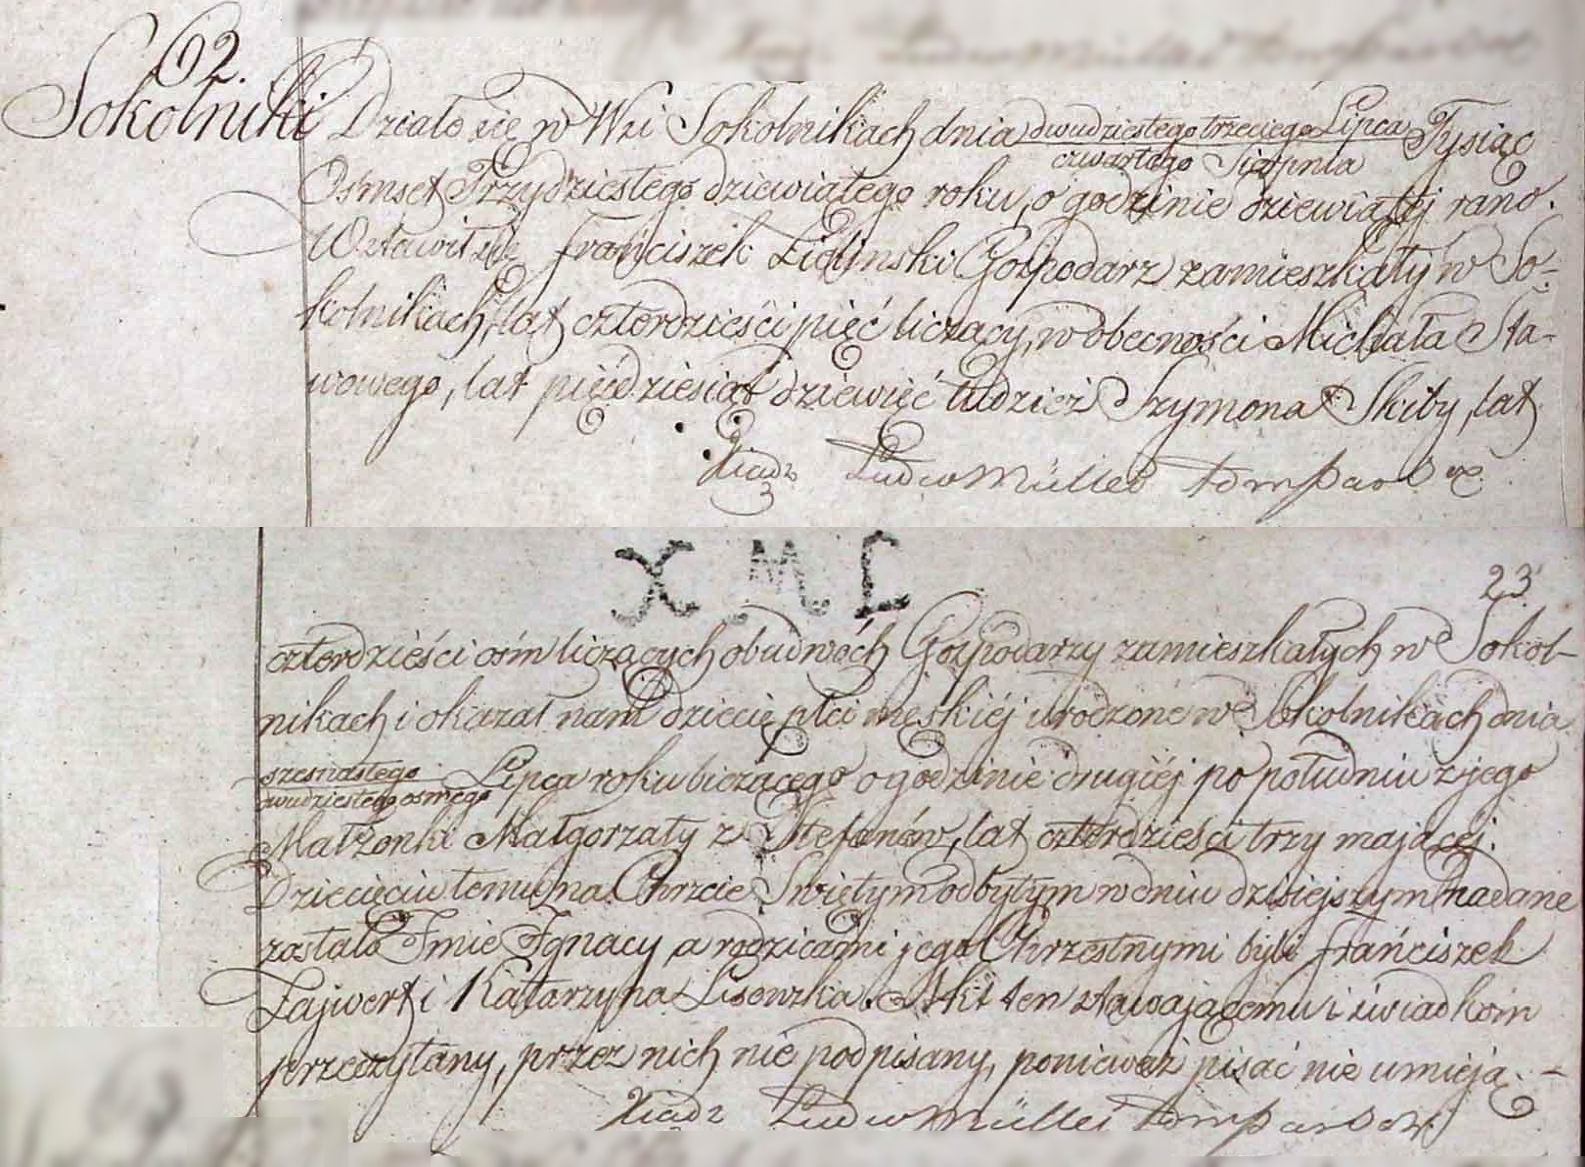 62.
Sokolniki
Działo się w Wsi Sokolnikach dnia dwudziestego trzeciego Lipca Tysiąc
czwartego Sierpnia
Osmset Trzydziestego dziewiątego roku, o godzinie dziewiątej rano.
Wstawił się Franciszek Zieliński Gospodarz zamieszkały w So=
kolnikach, lat czterdzieści pięć liczący, w obecności Michała Sta-
wowego, lat pięćdziesiąt dziewięć tudzież Szymona Skiby, lat
Xiadz Ludw Müller
X M L
23
czterdzieści ośm liczących obudwóch Gospodarzy zamieszkałych w Sokol-
nikach i okazał nam dziecię płci męskiéj urodzone w Sokolnikach dnia
szesnastego Lipca roku bieżącego o godzinie drugiéj po południu z jego
dwudziestego osmego
Małżonki Małgorzaty z Stefanów, lat czterdzieści trzy mającej.
Dziecięciu temu na Chrzcie Swiętym odbytym w dniu dzisiejszym nadane
zostało Imie Ignacy, a rodzicami jego Chrzestnymi byli Franciszek
Zajwert i Katarzyna Lisowska. Akt ten stawającemu i świadkom
przeczytany, przez nich nie podpisany, ponieważ pisać nie umieją. -
Xiadz Ludw Müller